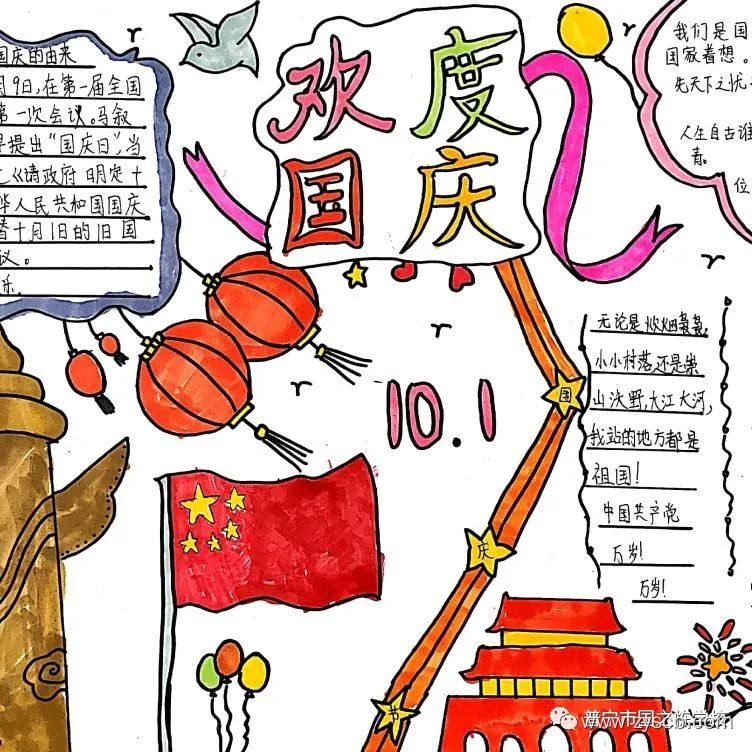 国庆的由来
月9日,在第一届全国
第一次会议。马叙
提出“国庆日”,当
《请政府明定十
华人民共和国国庆
替十月1日的旧国
议。
乐.
欢度
国庆
10.1
我们是国
国家着想。
先天下之忧
人生自古谁
青。
位
无论是炊烟袅袅,
小小村落,还是崇
山沃野,大江大河,
我站的地方都是
祖国!
中国共产党
万岁!
万岁!
国
庆
节
普宁市国